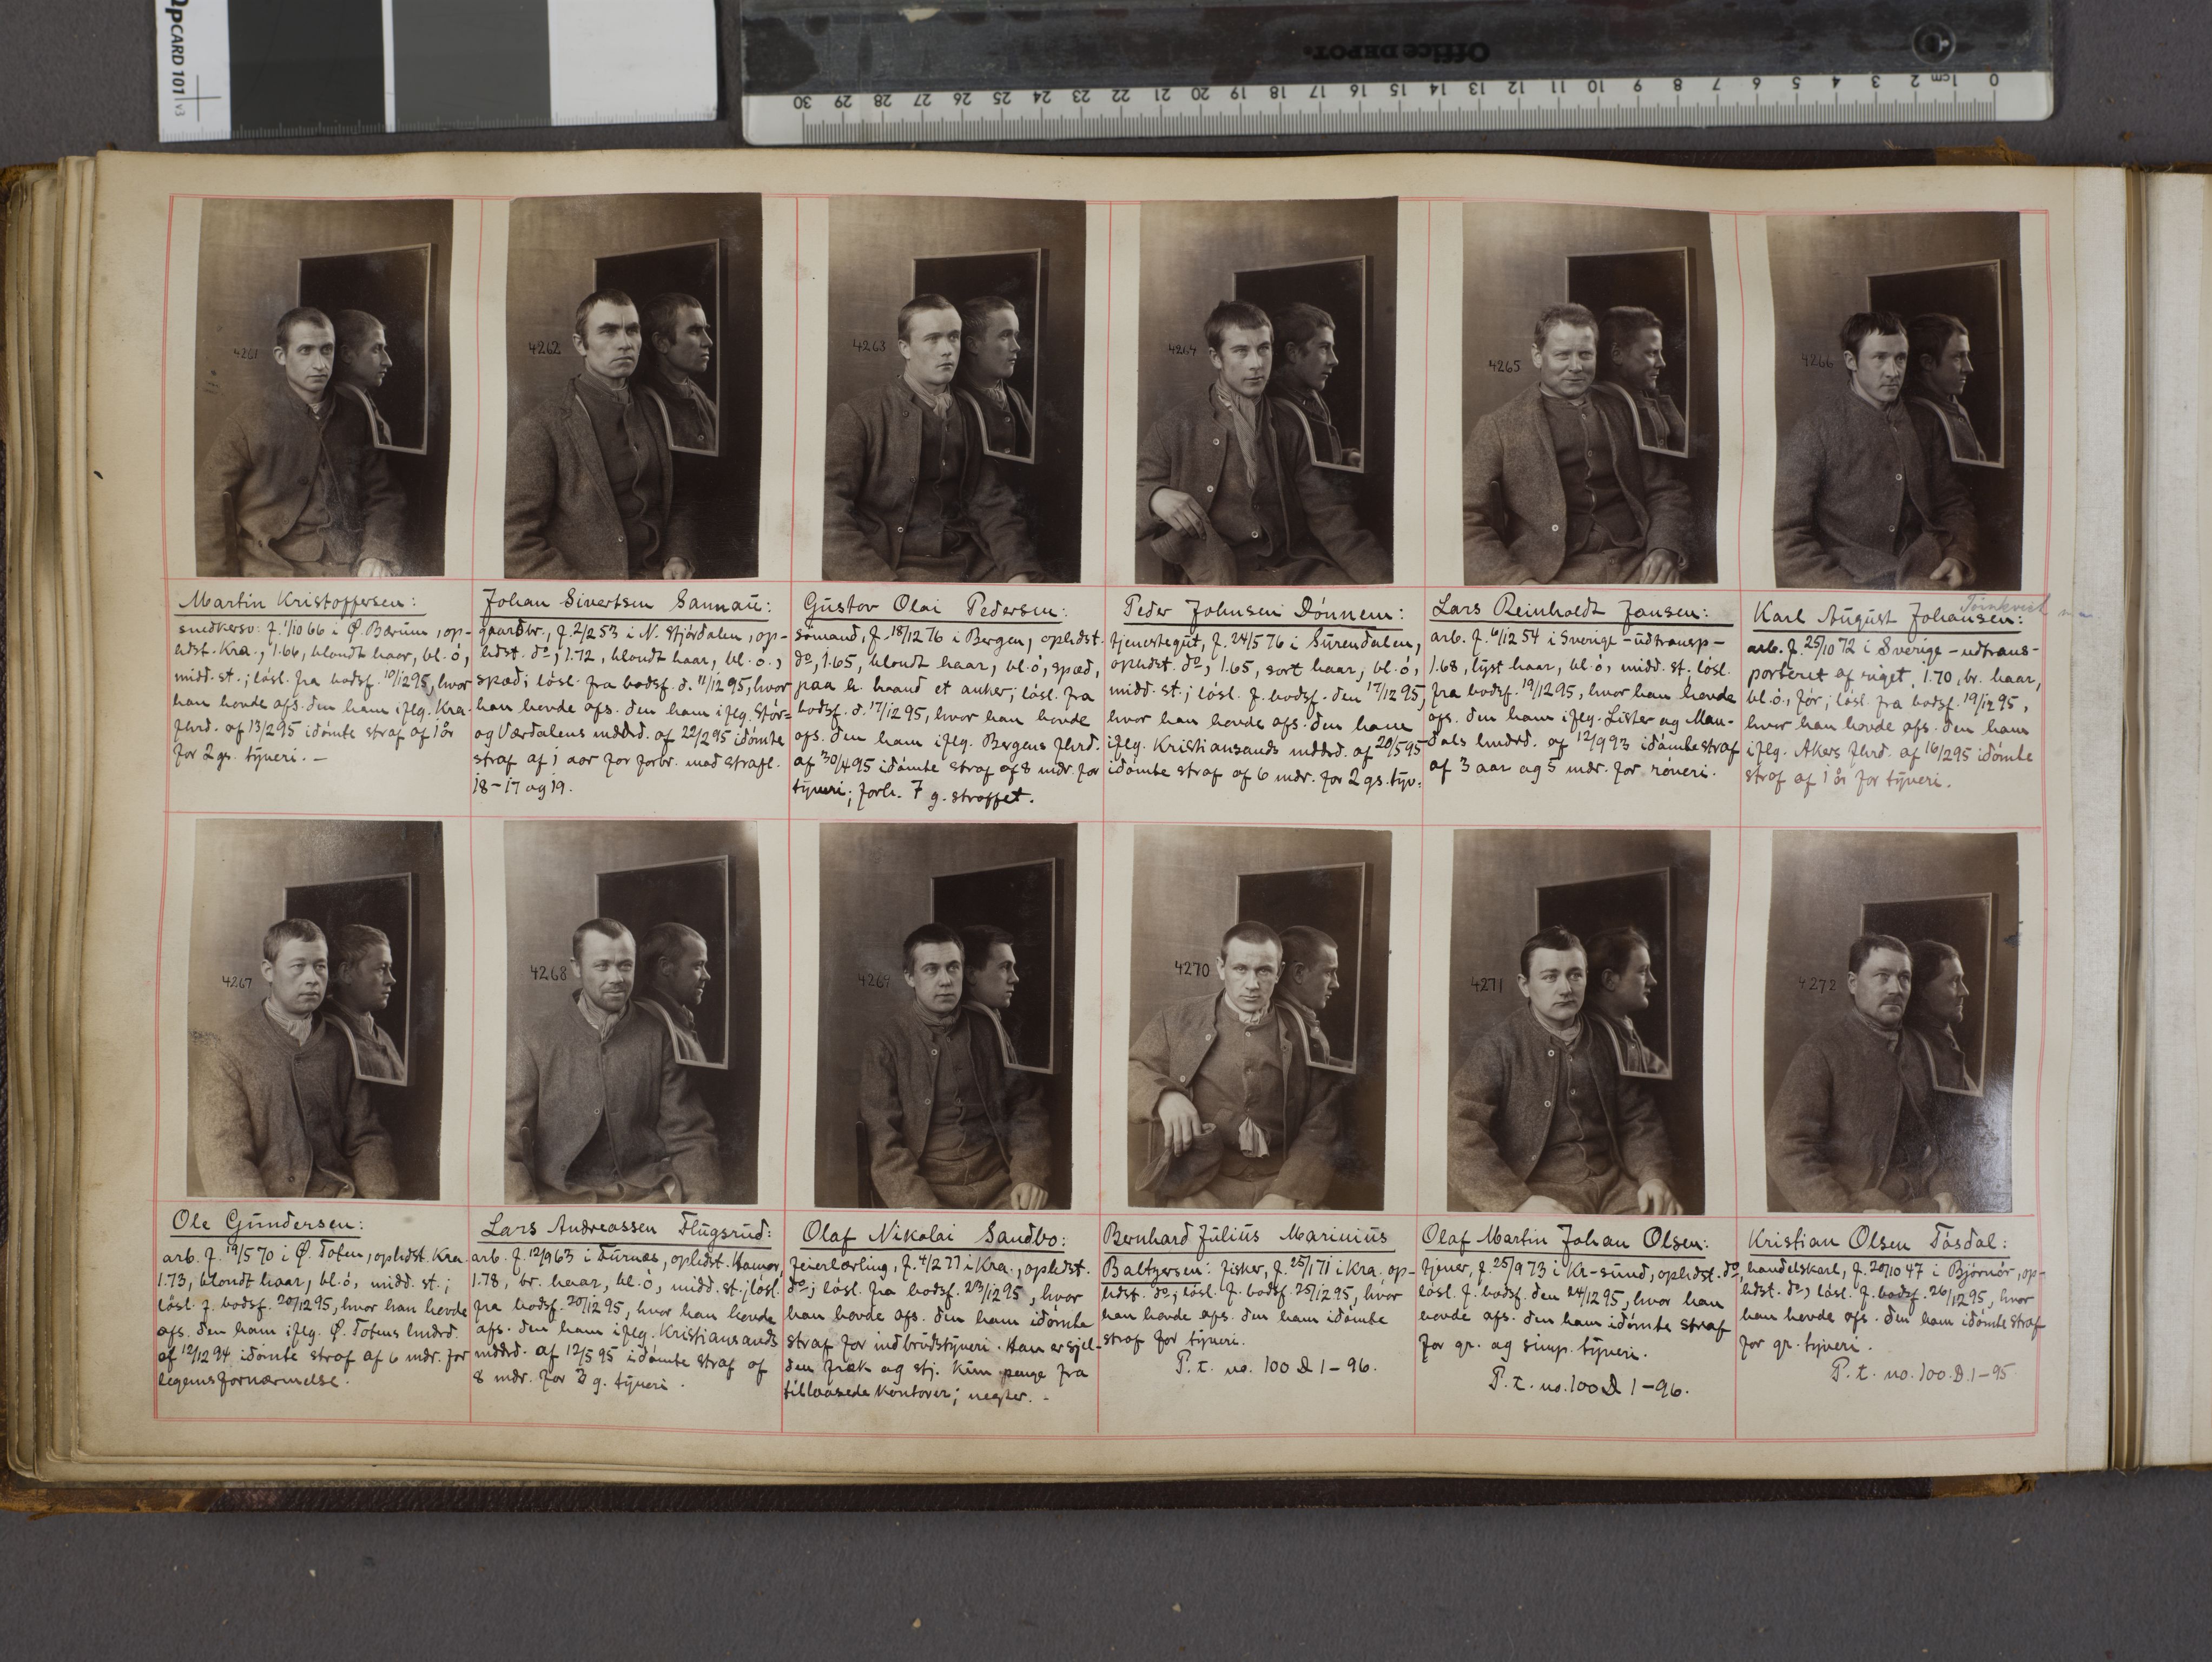 QPCARD 101 v3
Office DEPOT.
0 1cm 2 3 4 5 6 7 8 9 10 11 12 13 14 15 16 17 18 19 20 21 22 23 24 25 26 27 28 29 30
4261
4262
4263
4264
4265
4266
Martin Kristoffersen:
snedkersv. f. 1/10 66 i Ø. Bærum, op-
hdst. Kra., 1.66, blondt haar, bl. ö,
midd. st.; lösl. fra bodsf. 10/12 95, hvor
han havde afs. den ham iflg. Kra.
fhrd. af 13/2 95 idömte straf af 1 år
for 2 gs. tyveri. —
Johan Sivertsen Sannaü:
gaardbr., f. 2/2 53 i N. Stjördalen, op-
hdst. do, 1.72, blondt haar, bl. ö.,
spæd; lösl. fra bodsf. d. 11/12 95, hvor
han havde afs. den ham iflg. Stör-
og Værdalens meddrd. af 22/2 95 idömte
straf af 1 aar for forbr. mod strafl.
18-17 og 19.
Gustav Olai Pedersen:
sömand, f. 18/12 76 i Bergen, ophdst.
do, 1.65, blondt haar, bl. ö, spæd,
paa h. haand et anker; lösl. fra
bodsf. d. 17/12 95, hvor han havde
afs. den ham iflg. Bergens fhrd.
af 30/4 95 idömte straf af 8 mdr. for
tyveri; forh. 7 g. straffet.
Peder Johnsen Dönnem:
tjenestegut, f. 24/5 76 i Surendalen,
ophdst. do, 1.65, sort haar, bl. ö,
midd. st.; lösl. f. bodsf. den 17/12 95,
hvor han havde afs. den ham
iflg. Kristiansands meddrd. af 20/5 95
idömte straf af 6 mdr. for 2 gs. tyv.
Lars Reinholdt Jansen:
arb. f. 6/12 54 i Sverige - udtransp -
1.68, lyst haar, bl. ö, midd. st. lösl.
fra bodsf. 19/12 95, hvor han havde
afs. den ham iflg. Lister og Man-
dals lmdrd. af 12/9 93 idömte straf
af 3 aar og 5 mdr. for röveri.
Törnkvist
Karl August Johansen:
arb. f. 25/10 72 i Sverige - udtrans-
porteret af riget, 1.70, br. haar,
bl. ö., för; lösl. fra bodsf. 19/12 95,
hvor han havde afs. den ham
iflg. Akers fhrd. af 16/2 95 idömte
straf af 1 år for tyveri.
4267
4268
4269
4270
4271
4272
Ole Gundersen:
arb. f. 19/5 70 i Ø. Toten, ophdst. Kra
1.73, blondt haar, bl. ö, midd. st.;
lösl. f. bodsf. 20/12 95, hvor han havde
afs. den ham iflg. Ø. Totens lmdrd.
af 12/12 94 idömte straf af 6 mdr. for
legemsfornærmelse.
Lars Andreassen Flugsrud:
arb. f. 12/9 63 i Furnæs, ophdst. Hamar,
1.78, br. haar, bl. ö, midd. st. lösl.
fra bodsf. 20/12 95, hvor han havde
afs. den ham iflg. Kristiansands
meddrd. af 12/5 95 idömte straf af
8 mdr. for 3 g. tyveri.
Olaf Nikolai Sandbo:
feierlærling, f. 4/2 77 i Kra., ophdst.
do; lösl. fra bodsf. 23/12 95, hvor
han havde afs. den ham idömte
straf for indbrudstyveri. Han er sjel-
den fræk og stj. kun penge fra
tillaasede kontorer; negter. -
Bernhard Julius Marinius
Baltzersen: fisker, f. 25/1 71 i Kra. op-
hdst. do; lösl. f. bodsf. 25/12 95, hvor
han havde afs. den ham idömte
straf for tyveri.
P. t. no. 100 D 1-96.
Olaf Martin Johan Olsen:
tjener, f. 25/9 73 i Kr-sund, ophdst. do,
lösl. f. bodsf. den 24/12 95, hvor han
havde afs. den ham idömte straf
for gr. og simp. tyveri.
P. t. no. 100 D 1-96.
Kristian Olsen Tösdal:
handelskarl, f. 20/10 47 i Björnör, op-
hdst. do, lösl. f. bodsf. 26/12 95, hvor
han havde afs. den ham idömte straf
for gr. tyveri.
P. t. no. 100. D. 1-95